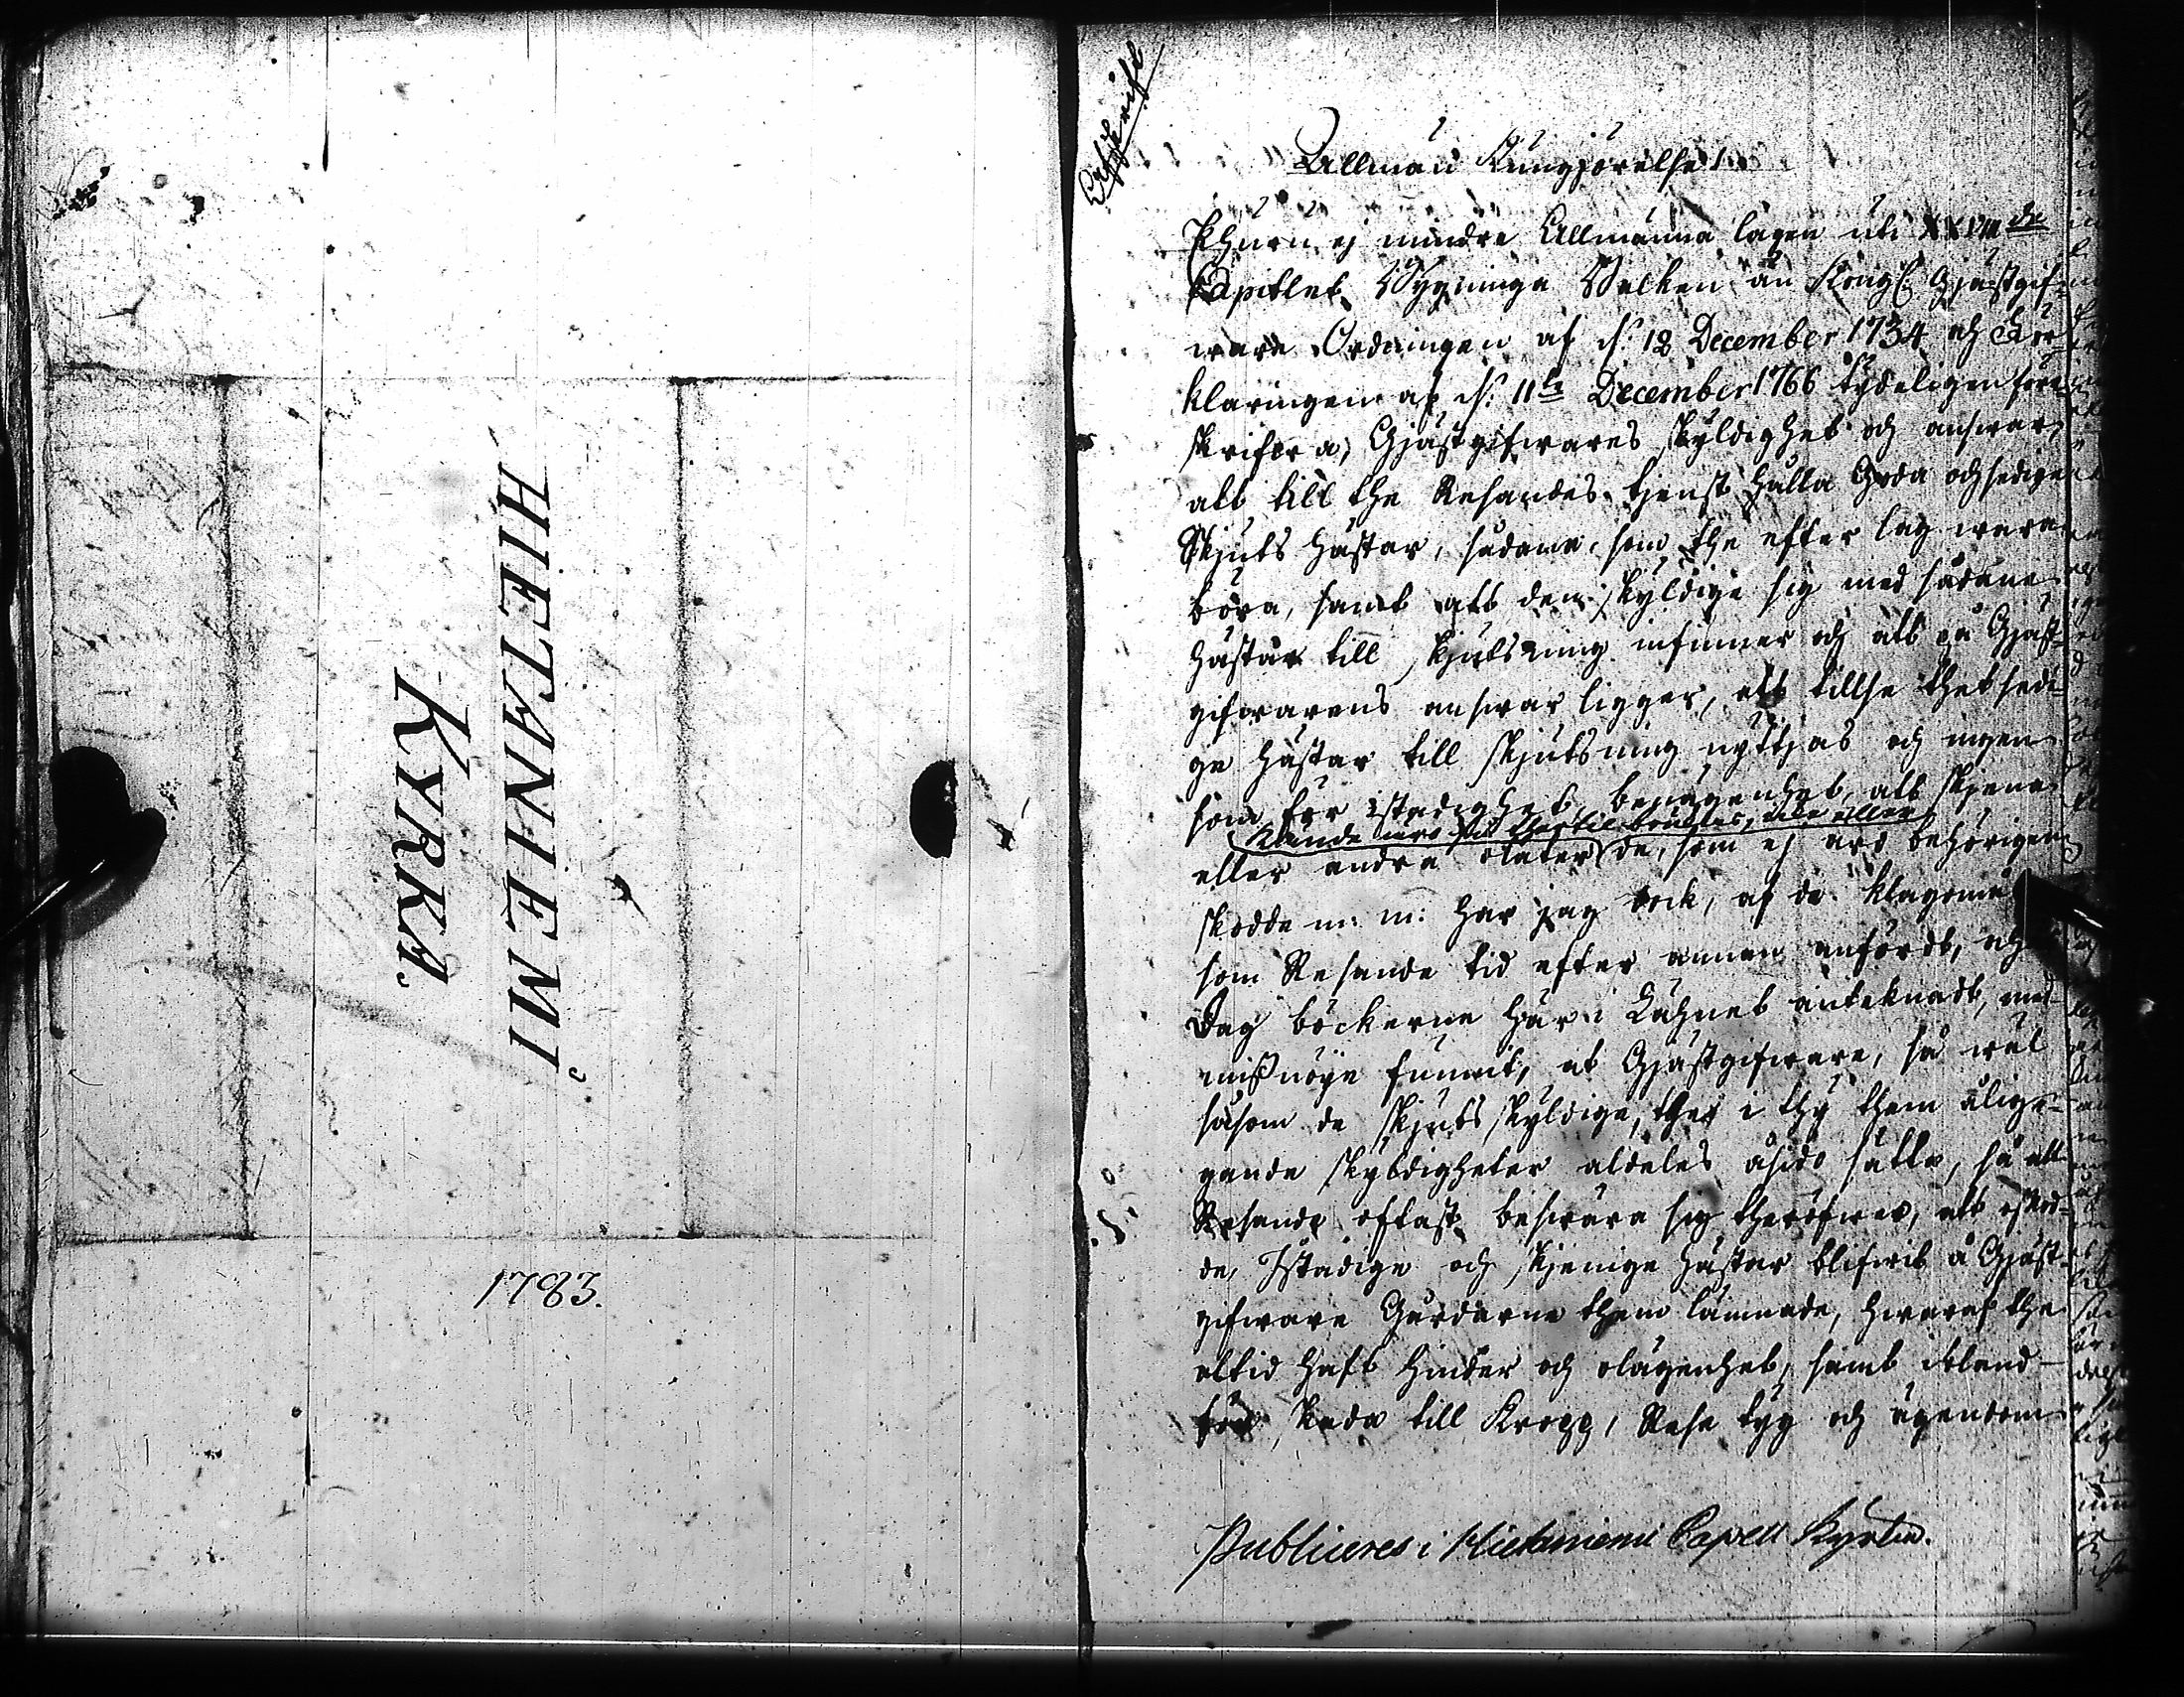 HIETANIEMI
KYRKA
1783.
Afskrift
Allmän Kungjörelse!
Ehuru ej mindre Allmänna lagen uti XXVIII de
Capitlet Bygninga Balken än Kongl: Gjästgif-
ware Ordningen af d: 12 December 1734 och För
klaringen af d: 11te December 1766 tydeligen före
skrifva, Gjästgifwares skyldighet och answar,
att till the Resandes tjenst hålla Goda och sedige
Skjuts hästar, sådana, som the efter lag wara
böra, samt att den skyldige sig med sådane
hästar till skjutsning infinner och att på Gjäst-
gifwarens answar ligger, att tillse thet sedi-
ge hästar till skjutsning nyttjas och ingen
som för istadighet, benägenhet att skjena
kände äro till brukas, icke eller
eller andra olater de, som ej äro behörigen
skodde m: m: har jag dock, af de klagomål
som Resande tid efter annan anfördt, och
Dag böckerne här i Lähnet anteknadt, med
missnöye funnit, at Gjästgifware, så wäl
såsom de Skjutsskyldige, thes i thy them ålig-
gande skyldigheter aldeles åsido satte, så att
Resande oftast beswära sig theröfwer, att oskod-
de, Istadige och skjenige hästar blifwit å Gjäst-
gifware Gårdarne them lämnade, hwaraf the
altid haft hinder och olägenhet, samt ibland
skada till Kropp, Rese tyg och ägendom
Publiceres i Hietaniemi Capell Kyrka.